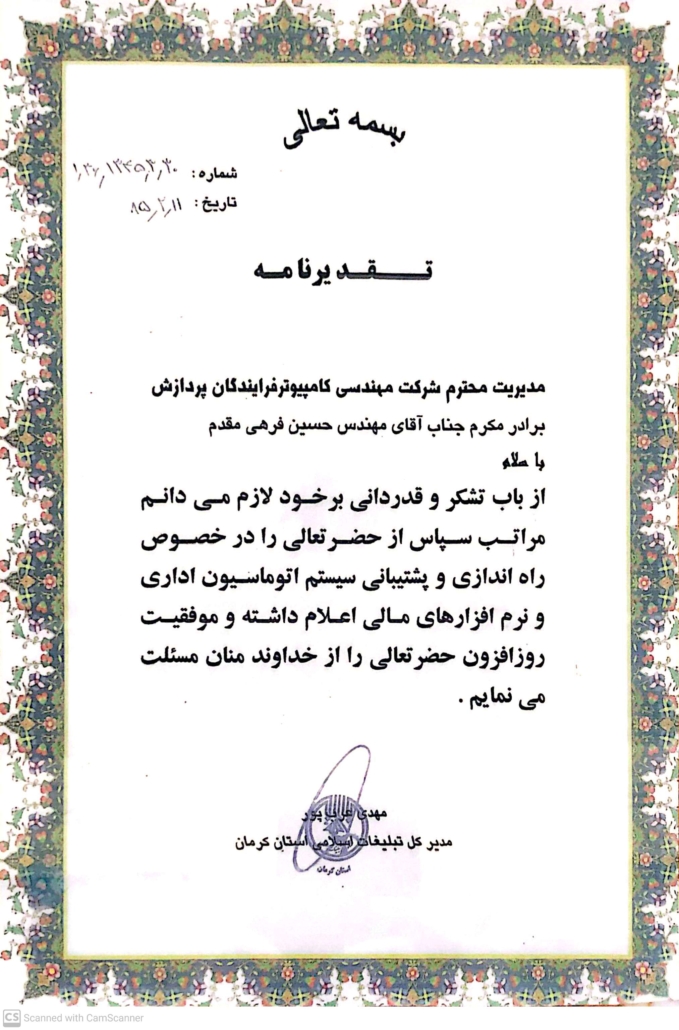 بسمه تعالی
شماره :
تاریخ : ۸۵٫۲٫۱۱
تقدیرنامه
مدیریت محترم شرکت مهندسی کامپیوترفرایندگان پردازش
برادر مکرم جناب آقای مهندس حسین فرهی مقدم
با سلام
از باب تشکر و قدردانی برخود لازم می دانم
مراتب سپاس از حضرتعالی را در خصوص
راه اندازی و پشتیبانی سیستم اتوماسیون اداری
و نرم افزارهای مالی اعلام داشته و موفقیت
روزافزون حضرتعالی را از خداوند منان مسئلت
می نمایم .
مهدی عرب پور
مدیر کل تبلیغات اسلامی استان کرمان
استان کرمان
CS Scanned with CamScanner